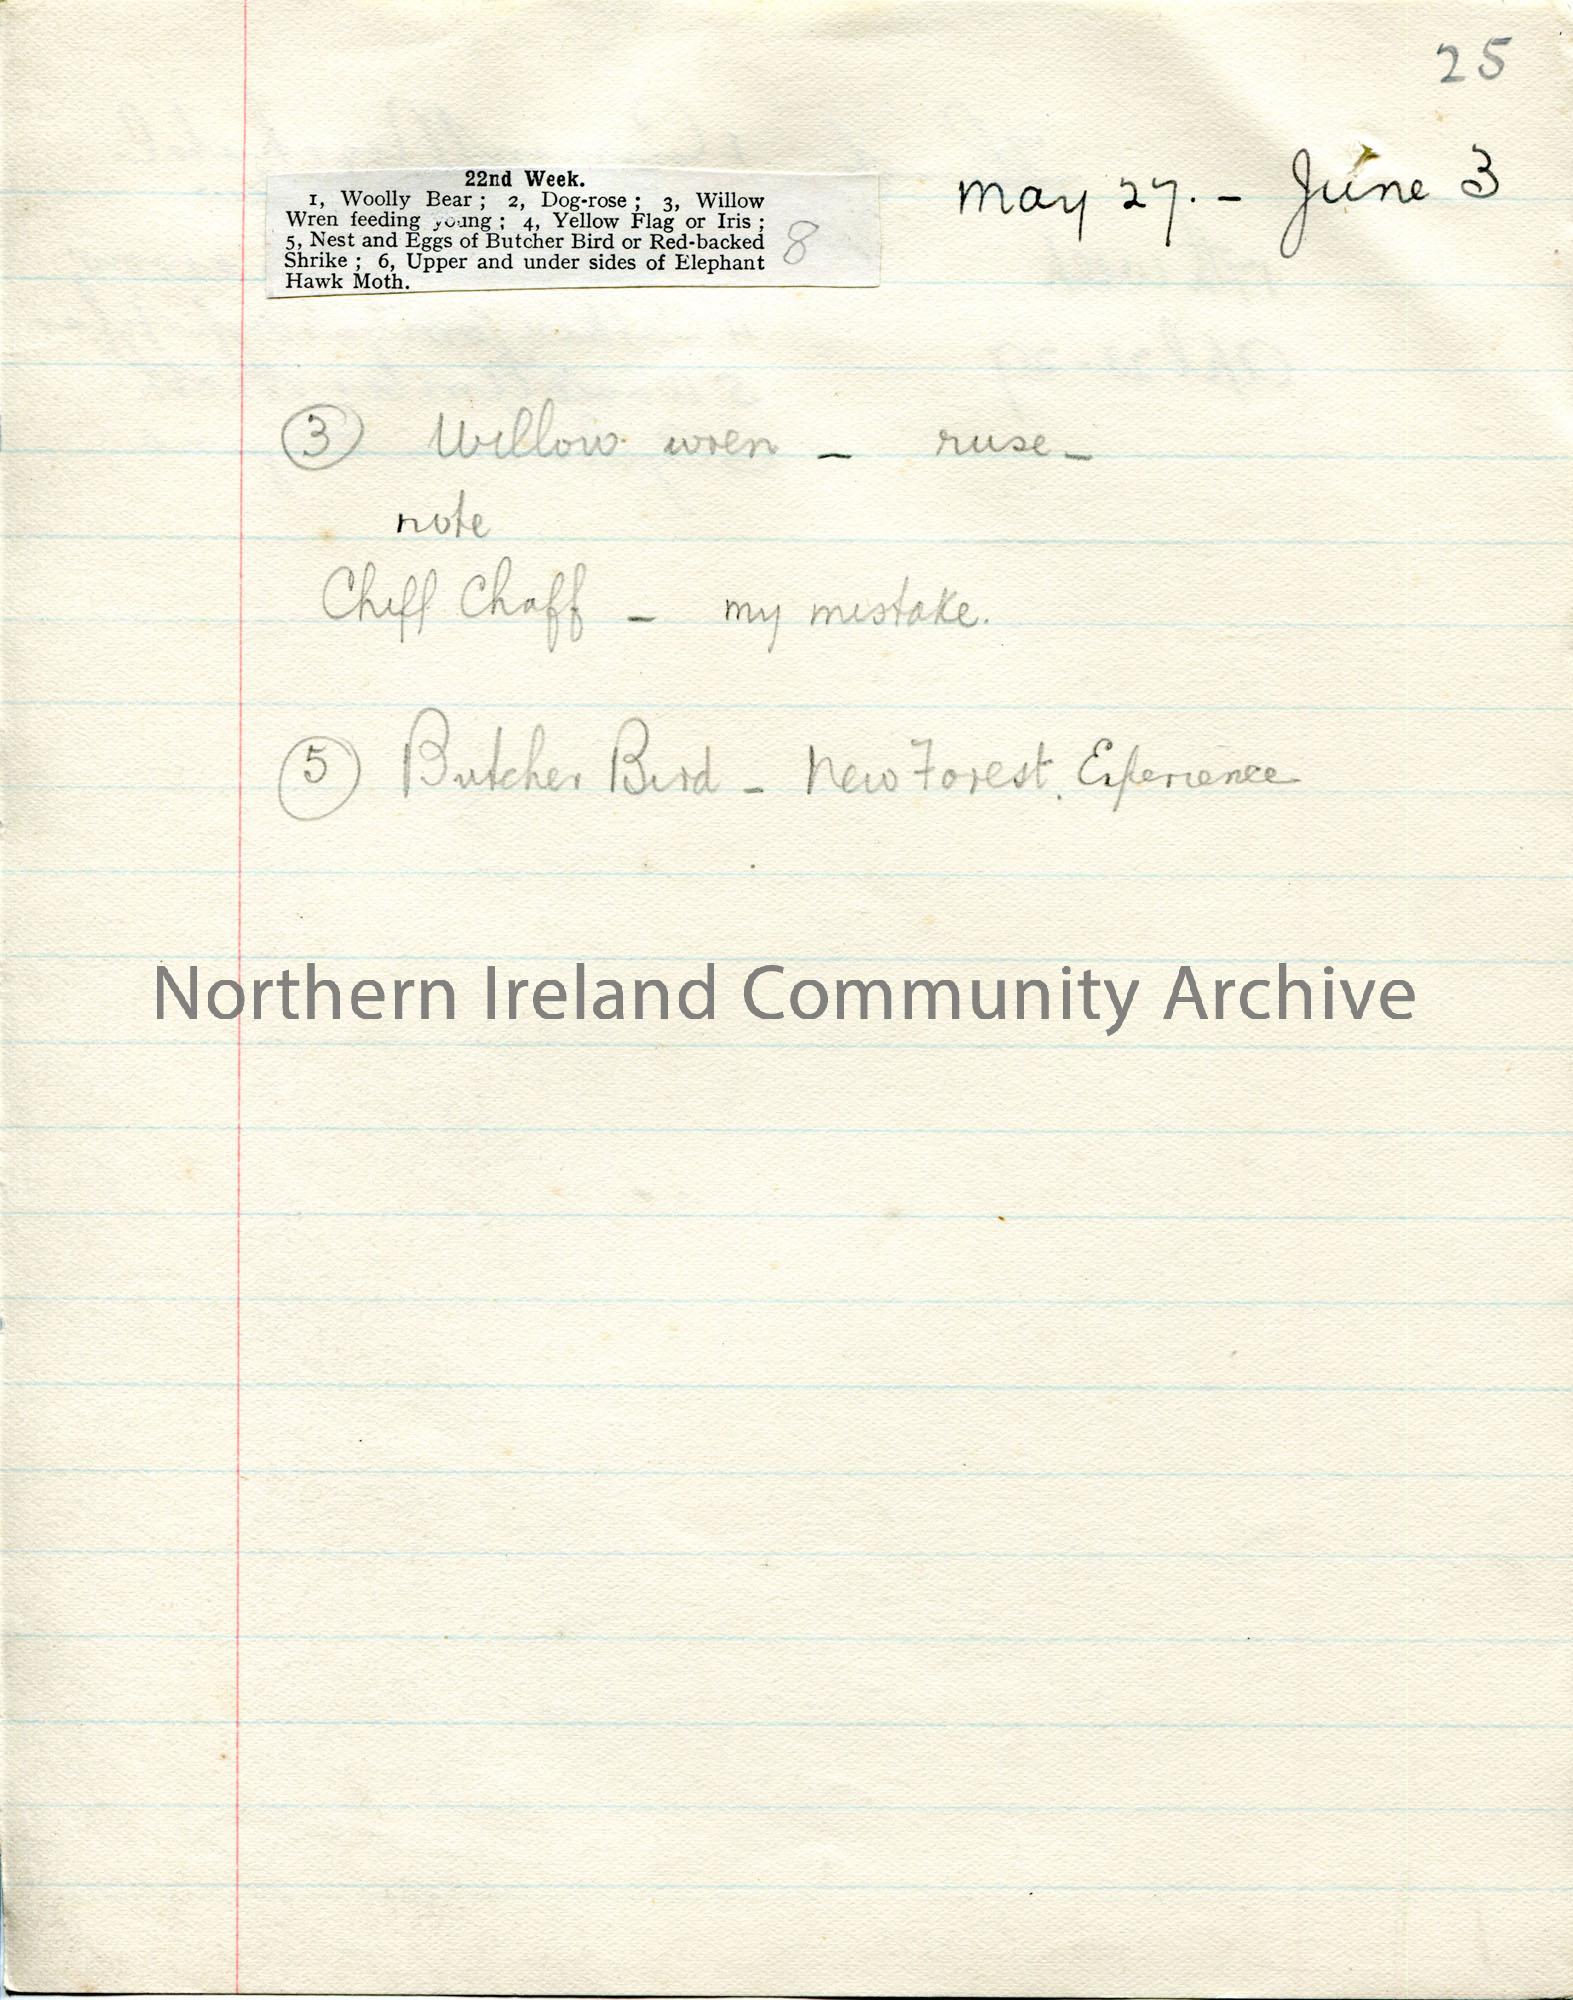 25
May 27. - June 3
22nd Week.
1, Woolly Bear; 2, Dog-rose; 3, Willow
Wren feeding young; 4, Yellow Flag or Iris;
5, Nest and Eggs of Butcher Bird or Red-backed
Shrike; 6, Upper and under sides of Elephant
Hawk Moth.
8
3 Willow wren - ruse -
note
Chiff Chaff - my mistake.
5 Butcher Bird - New Forest. Experience
Northern Ireland Community Archive